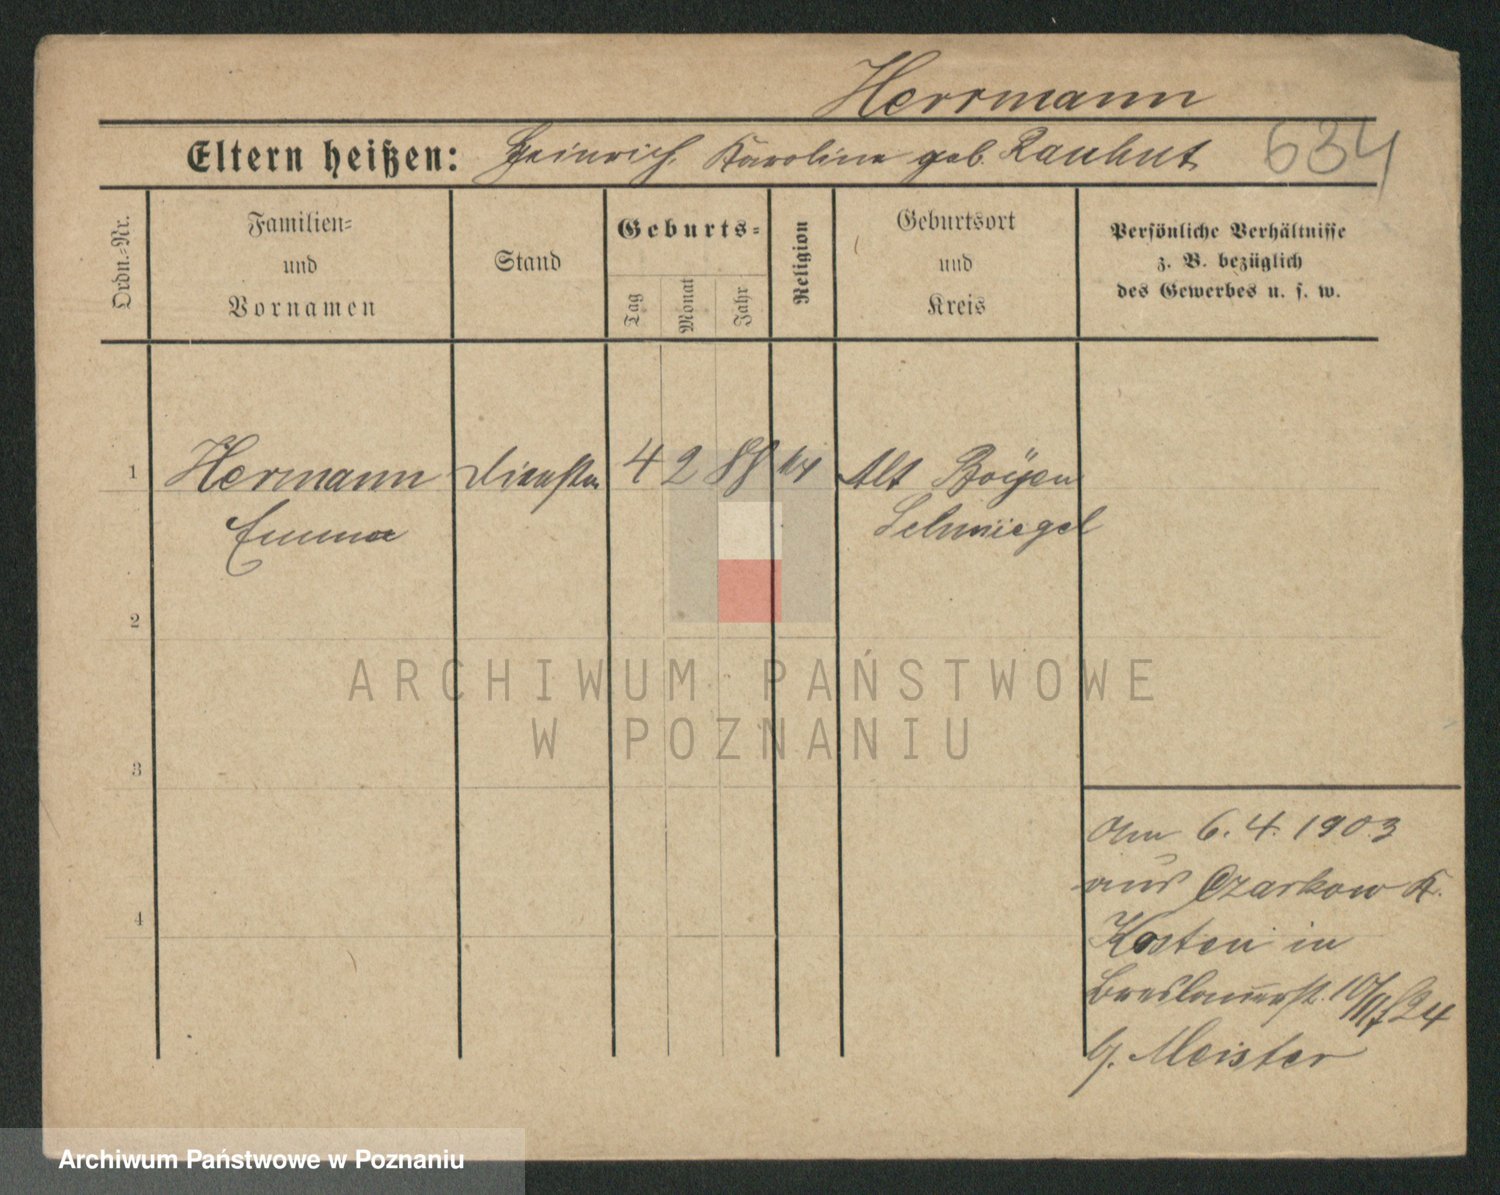 Herrmann
Eltern heißen: Heinrich, Karoline geb. Rauhut
634
Ordn.-Nr.
Familien=
und
Vornamen
Stand
Geburts=
Tag
Monat
Jahr
Religion
Geburtsort
und
Kreis
Persönliche Verhältnisse
z. B. bezüglich
des Gewerbes u. s. w.
1 Hermann 4 2 88 Alt Boyen
Emma Schmiegel
2
3
4
Am 6. 4. 1903
aus Czarkow K.
Kosten in
Breslauerst.
G. Meister
ARCHIWUM PAŃSTWOWE
W POZNANIU
Archiwum Państwowe w Poznaniu